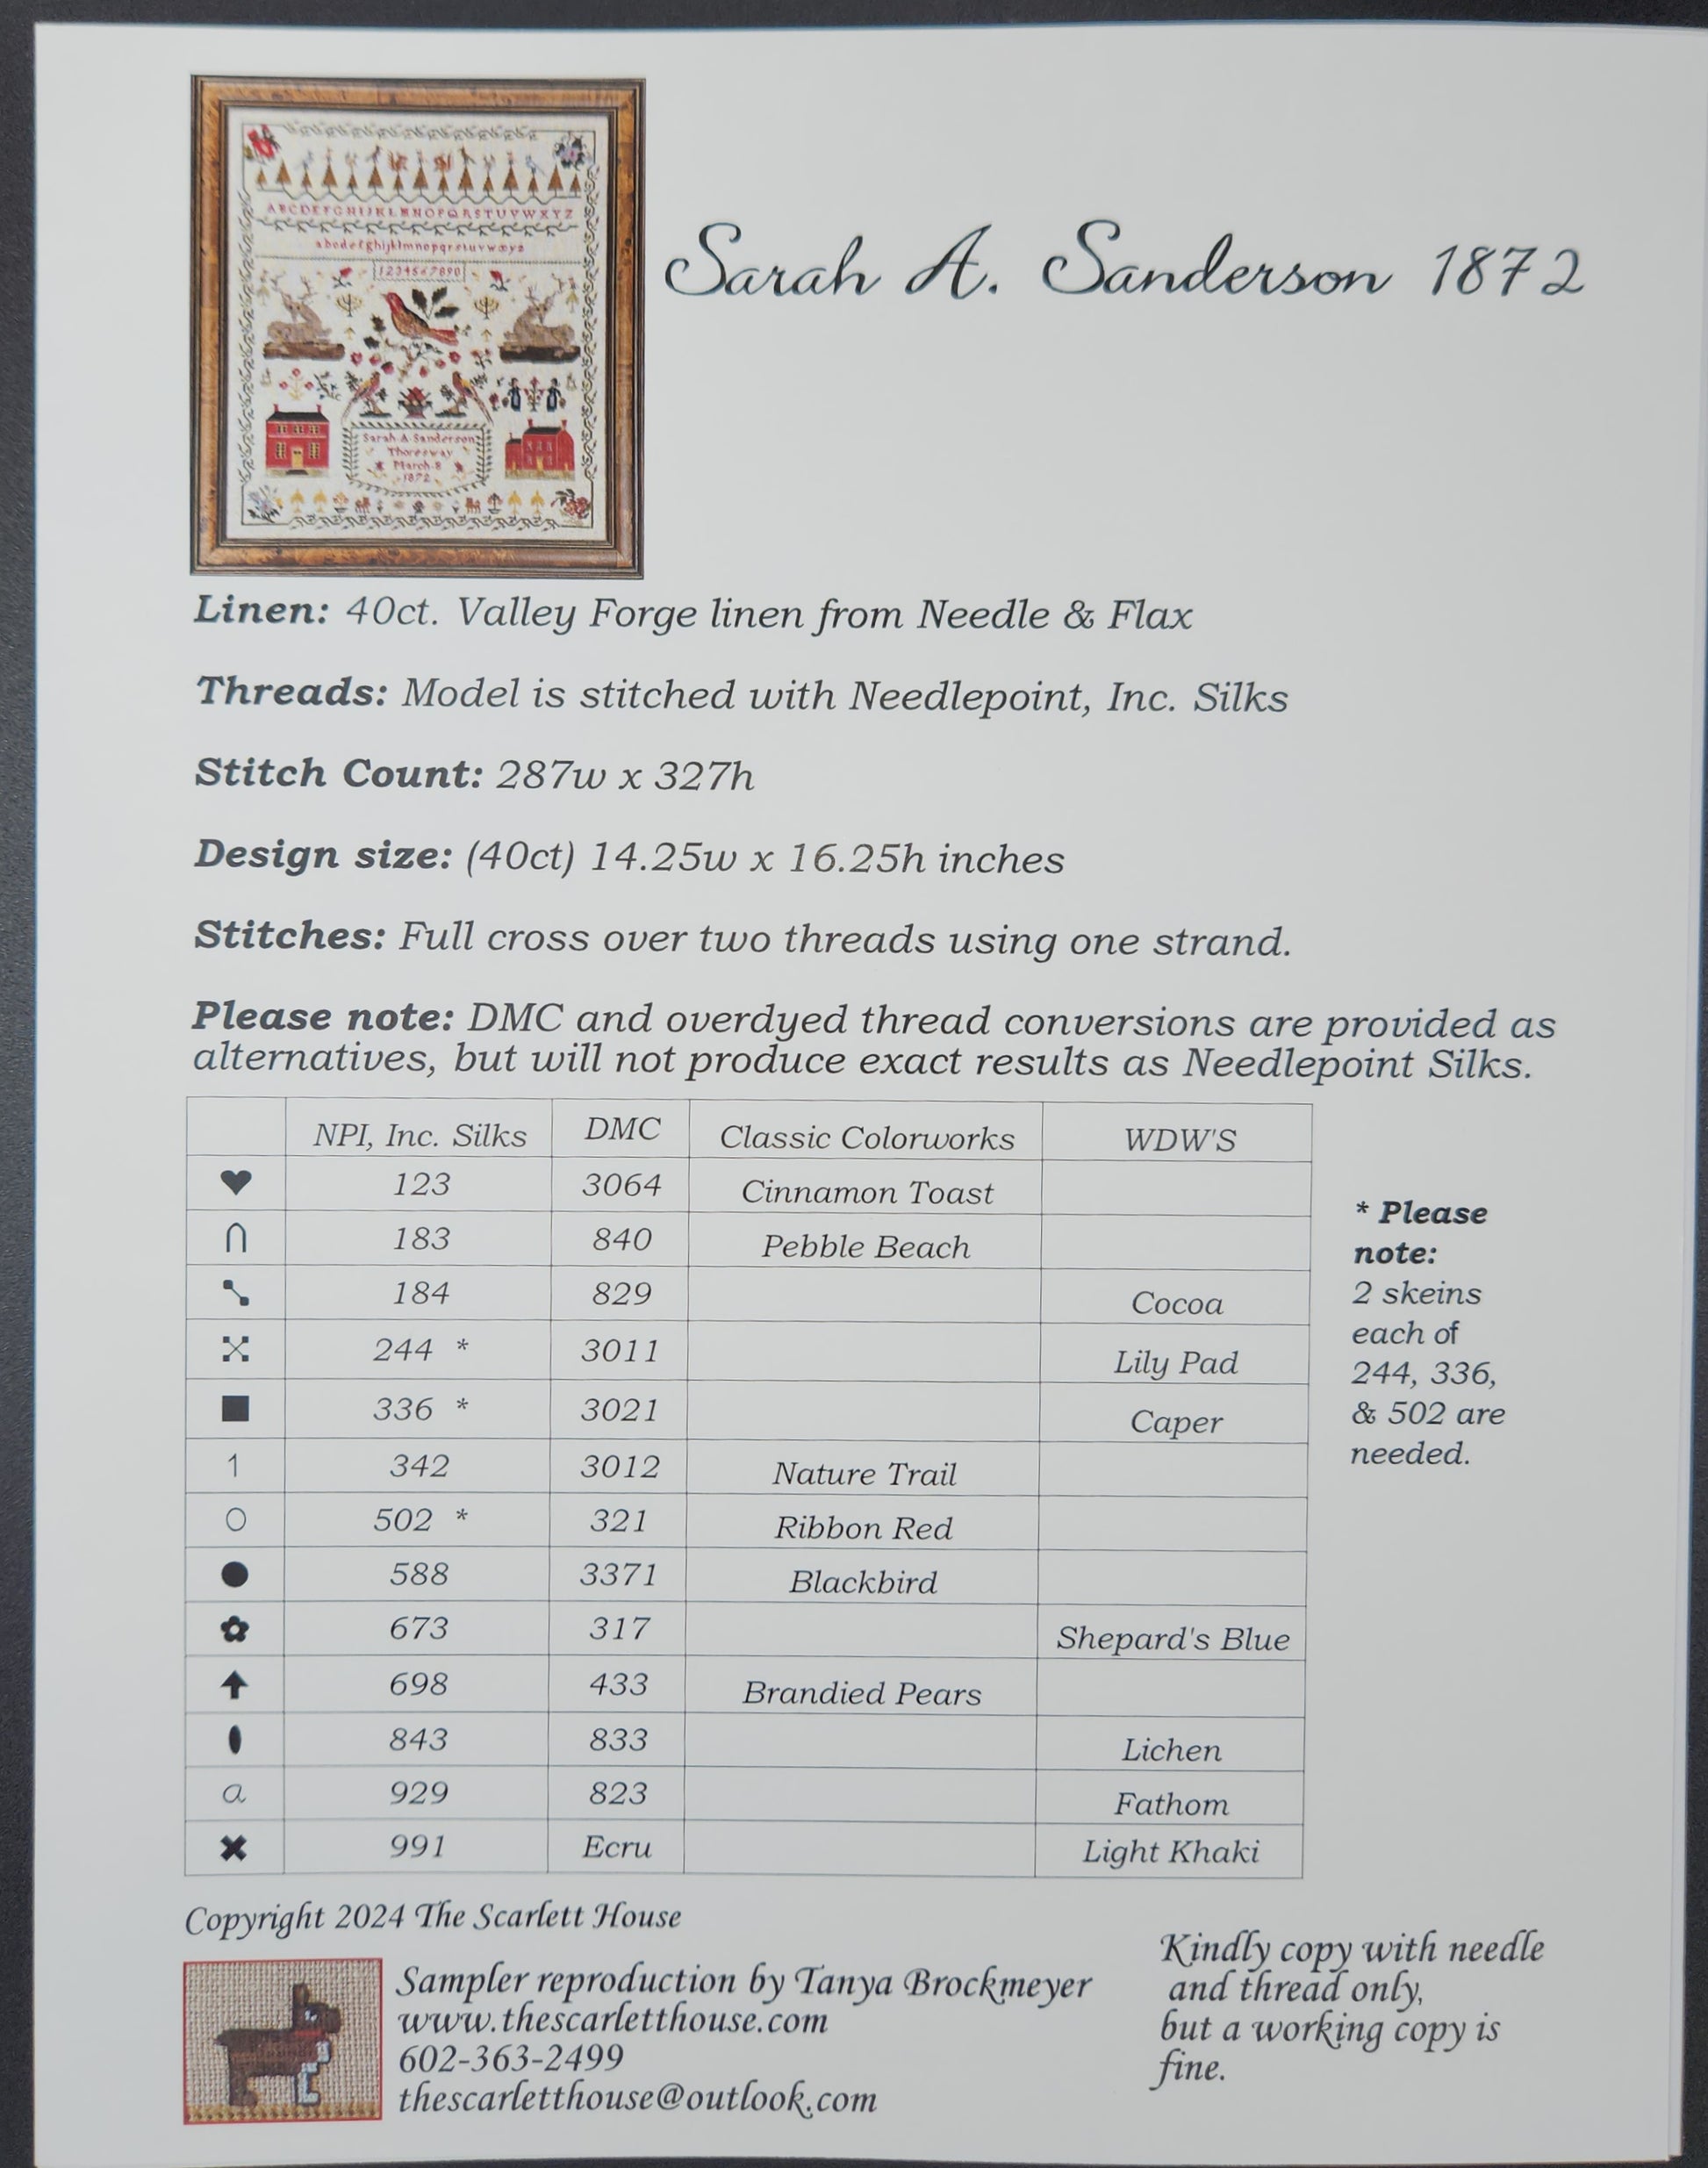 ABCDEFGHIJKLMNOPQRSTUVWXYZ
abcdefghijklmnopqrstuvwxyz
1234567890
Sarah A Sanderson
Thoresway
March 8
1872
Sarah A. Sanderson 1872
Linen: 40ct. Valley Forge linen from Needle & Flax
Threads: Model is stitched with Needlepoint, Inc. Silks
Stitch Count: 287w x 327h
Design size: (40ct) 14.25w x 16.25h inches
Stitches: Full cross over two threads using one strand.
Please note: DMC and overdyed thread conversions are provided as
alternatives, but will not produce exact results as Needlepoint Silks.
NPI, Inc. Silks DMC Classic Colorworks WDW'S
♥ 123 3064 Cinnamon Toast
∩ 183 840 Pebble Beach
184 829 Cocoa
244 * 3011 Lily Pad
■ 336 * 3021 Caper
1 342 3012 Nature Trail
○ 502 * 321 Ribbon Red
● 588 3371 Blackbird
✿ 673 317 Shepard's Blue
↑ 698 433 Brandied Pears
843 833 Lichen
a 929 823 Fathom
✖ 991 Ecru Light Khaki
* Please
note:
2 skeins
each of
244, 336,
& 502 are
needed.
Copyright 2024 The Scarlett House
Sampler reproduction by Tanya Brockmeyer
www.thescarletthouse.com
602-363-2499
thescarletthouse@outlook.com
Kindly copy with needle
and thread only,
but a working copy is
fine.